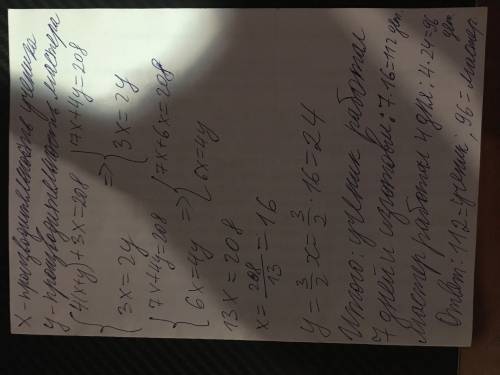 x - производительность ученика
y - производительность мастера
{4(x+y)+3x=208 => {7x+4y=208
{3x=2y {3x=2y
{7x+4y=208 => {7x+6x=208
{6x=4y {6x=4y
13x=208
x=208/13=16
y=3/2x=3/2·16=24
Итого: ученик работал
7 дней и изготовил: 7·16=112 дет.
Мастер работал 4 дня: 4·24=96 дет.
Ответ: 112 - ученик, 96 - мастер.